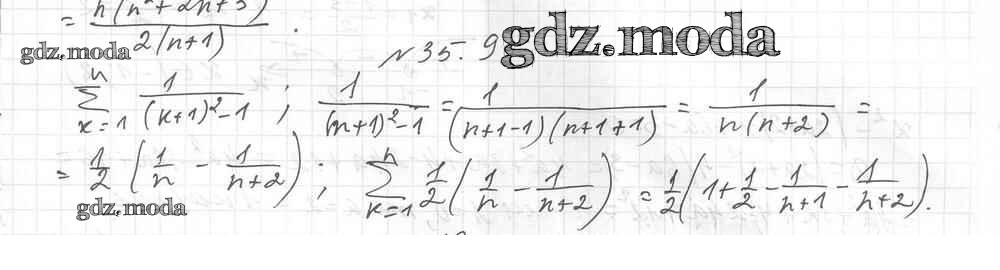 = n(n² + 2n + 3) / 2(n+1) .
gdz.moda
№ 35. 9 gdz.moda
n ∑ k=1 1/((k+1)² - 1) ; 1/((n+1)² - 1) = 1/((n+1-1)(n+1+1)) = 1/(n(n+2)) =
= 1/2 (1/n - 1/(n+2)) ; n ∑ k=1 1/2 (1/n - 1/(n+2)) = 1/2 (1 + 1/2 - 1/(n+1) - 1/(n+2)).
gdz.moda